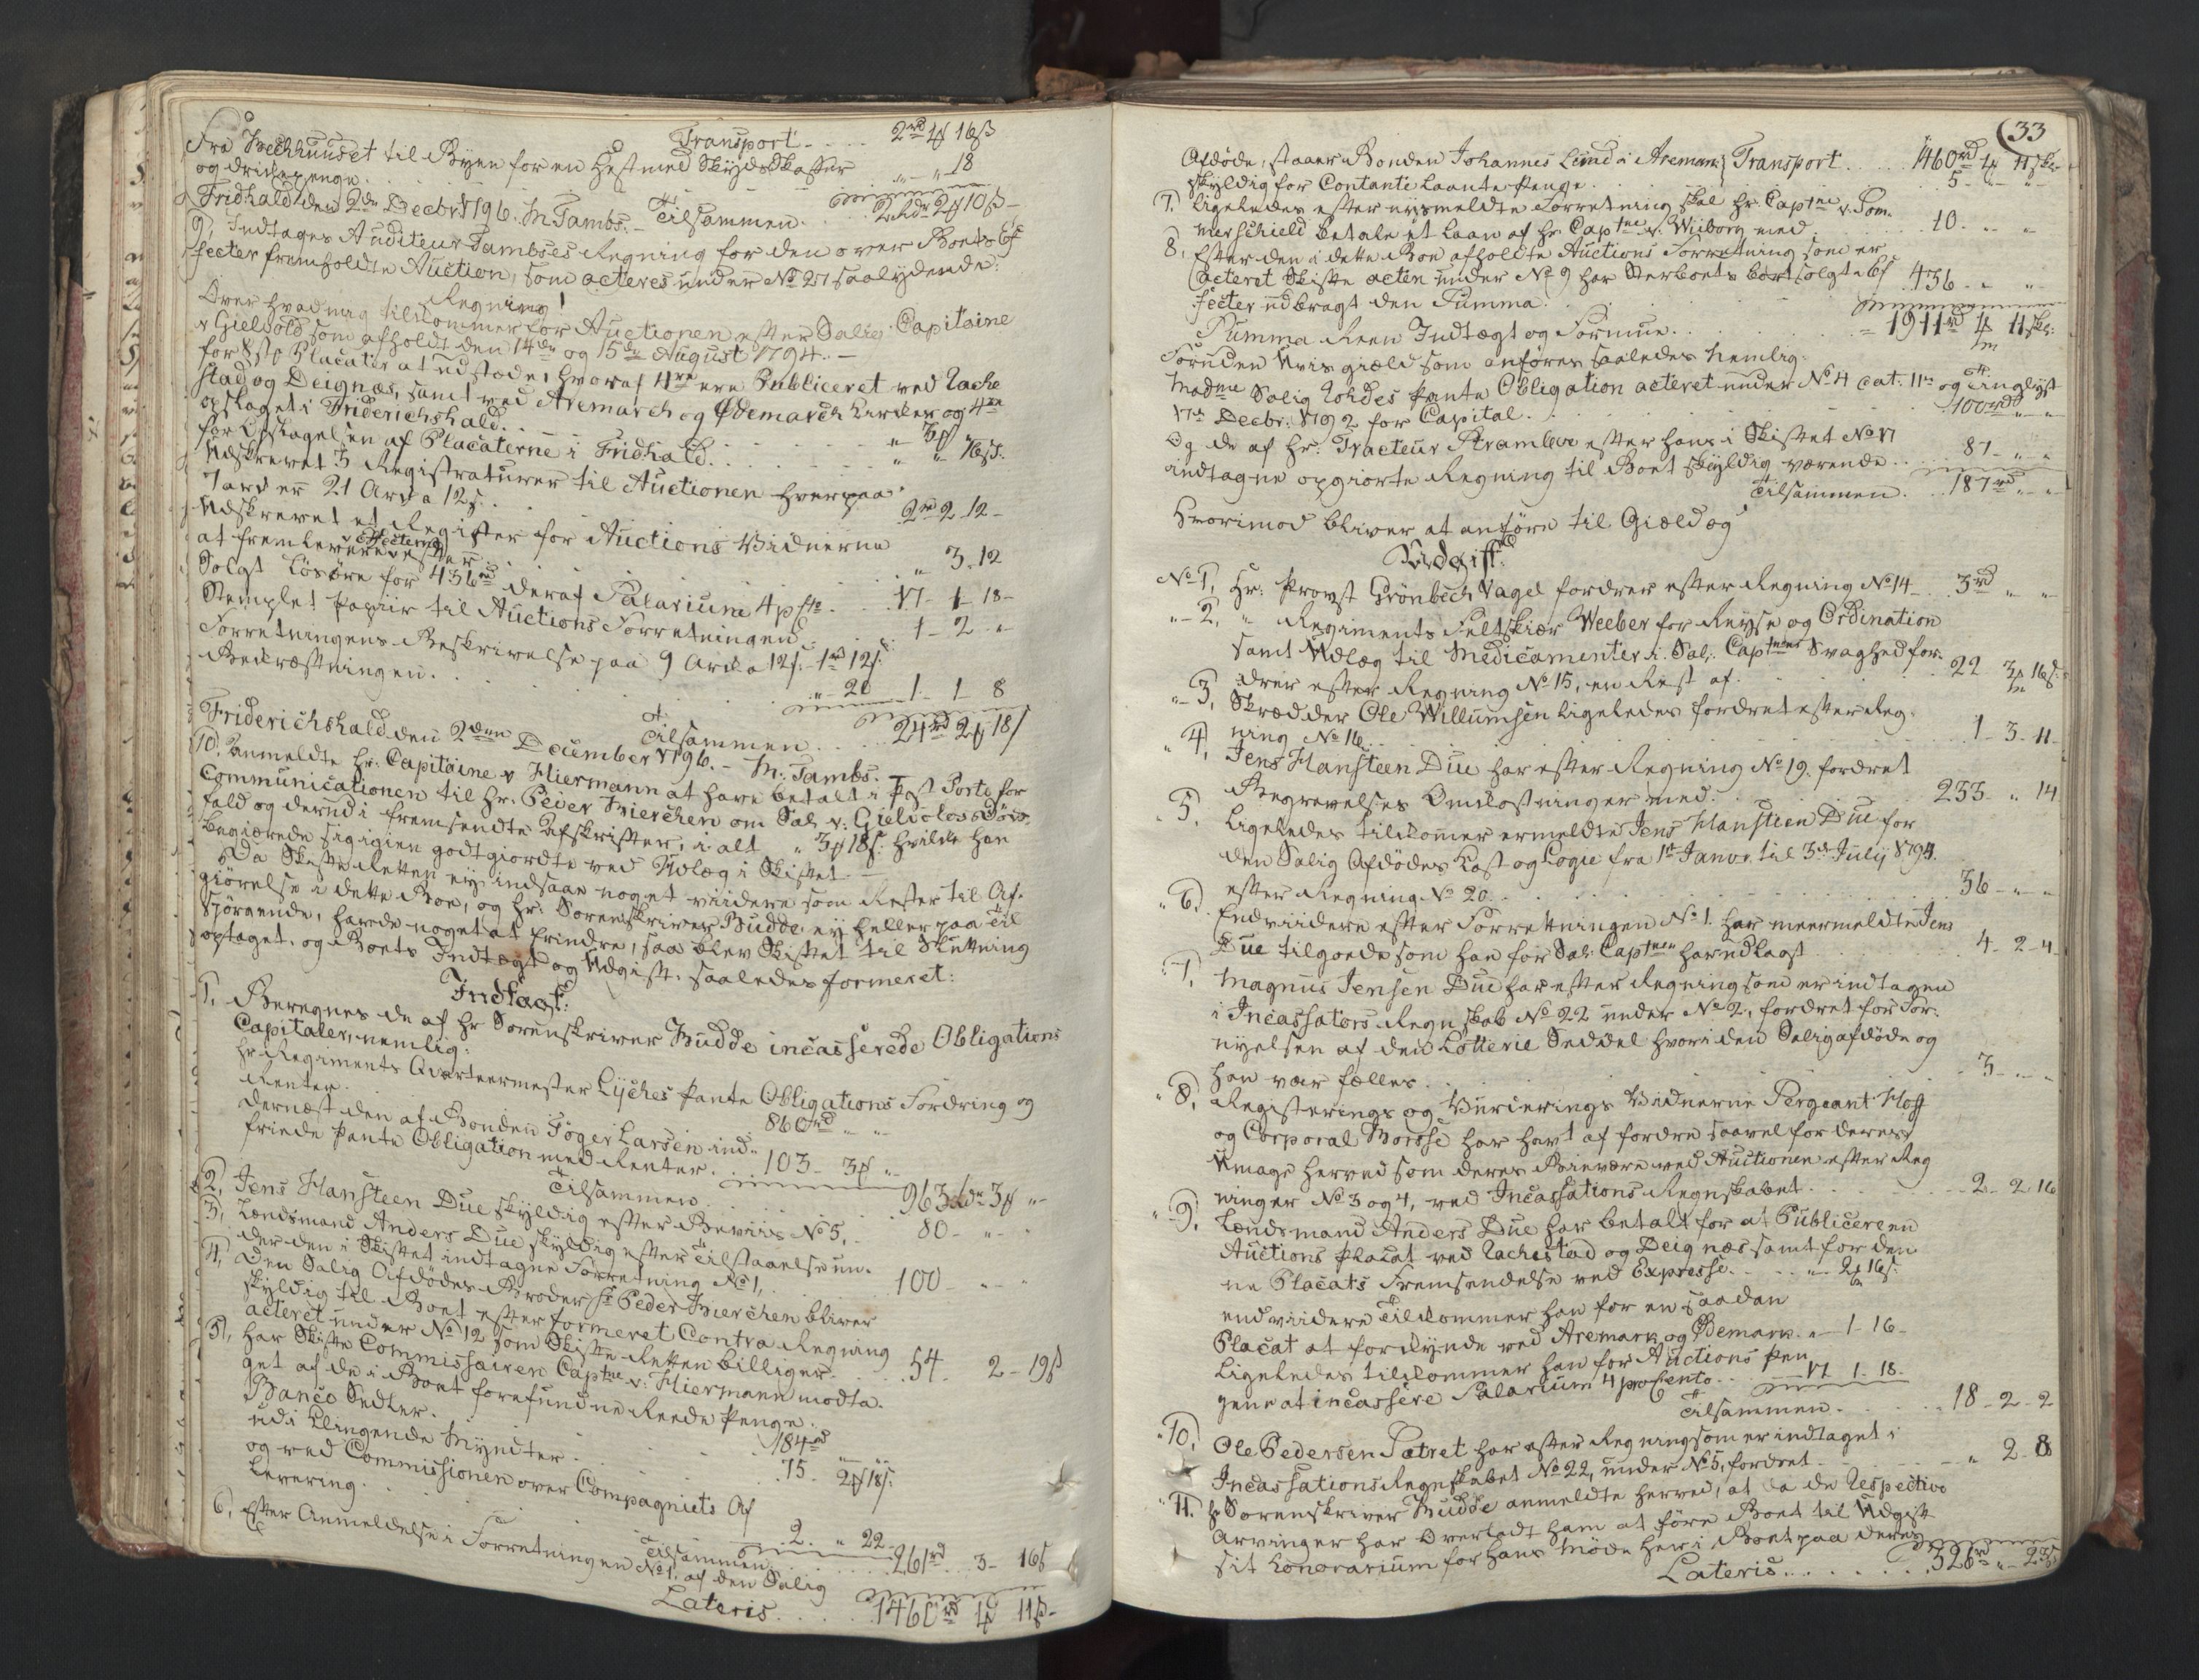 Transport .... 2rd 1f 16s
Fra Beckhuuset til Byen for en Hest med Skyds Skaffer
og drickepenge . . . „ „ 18
Tilsammen. 2rdr 2f 10s
Fridhald den 2de Decbr 1796. M. Tambs.
9, Indtages Auditeur Tambses Regning for den over Boets Ef
fecter fremholdte Auction, som acteres under No 27 saalydende:
Regning!
Over hvad mig tilkommer for Auctionen efter Salig Capitaine
v Gielvold som afholdt den 14de og 15de August 1794. —
for 8 st. Placater at udstæde, hvoraf 4re ere Publiceret ved Rache
stad og Deignæs, samt ved Aremarck og Ødemarck Kircker og 4re
opslaget i Friderichshald. . . „ 3f
for Opslagelsen af Placaterne i Fridhald. . . „ „ 16s.
Udskrevet 3 Registraturer til Auctionen hver paa
7 ark er 21 Ark a 12s. . . 2rd 2 12 -
Udskrevet et Register for Auctions Vidnerne
at fremlevere Effecterne efter . . „ 3. 12
Solgt Løsøre for 436rd deraf Salarium 4 pCto. . . 17 - 1 - 18 -
Stemplet Papiir til Auctions Forretningen . . 1 - 2 - „
Forretningens Beskrivelse paa 9 Ark a 12s. 1rd 12s.
Bekræftningen. . . „ 20 1 - 1 8
Tilsammen . . . 24rd 2f 18s
Friderichshald den 2den December 1796. - M: Tambs.
10. anmeldte Hr: Capitaine v Hiermann at have betalt i Post Porto for
Communicationen til Hr. Peder Bierchen om Sal. v: Gielvolds Døds-
fald og derudi fremsendte Afskrifter, i alt „ 3f 18s. hvilke han
begiærede sig igien godtgiordte ved Udlæg i Skiftet —
Da Skifte Retten ey indsaae noget viidere som Rester til Af-
giørelse i dette Boe, og Hr: Sorenskriver Budde ey heller paa Til
spørgende, havde noget at erindre, saa blev Skiftet til Slutning
optaget, og Boets Indtægt og Udgift saaledes formeret:
Indtægt:
1, Beregnes de af Hr Sorenskriver Budde incasserede Obligations
Capitaler, nemlig:
Hr. Regiments Qvarteermester Lyches Pante Obligations Fordring og
Renter. . . 860rd „ „
dernæst den af Bonden Toger Larsen ind-
friede Pante Obligation med Renter. . . 103 - 3f „
Tilsammen . . 963rdr 3f „
2, Jens Hansteen Due skyldig efter Beviis No 5, . 80 - „ „
3, Lendsmand Anders Due skyldig efter Tilstaaelse un-
der den i Skiftet indtagne Forretning No 1, . . 100 „ „
4, Den Salig Afdødes Broder Sr Peder Bierchen bliver
skyldig til Boet efter formeret Contra Regning
acteret under No 12 som Skifte Retten billiger. . 54. 2 - 19s
5, har Skifte Commissairen Captne v: Hiermann modta-
get af de i Boet forefundne Reede Penge.
Banco Sedler. . . 184rd „ „
udi klingende Myndter . . 75. 2f 18s.
og ved Commissionen over Compagniets Af
levering. . . 2. „ 22
Tilsammen . . 261rd. 3 - 16s
6, Efter Anmeldelse i Forretningen No 1. af den Salig
Lateris . . . 1460rd 1f 11s -
33
Afdøde, staaer Bonden Johannes Lund i Aremark Transport . . 1460rd 1f 11sk.
skyldig for Contante laante Penge . . 5 - „ „
7. ligeledes efter nysmeldte Forretning skal Hr. Captne v. Som-
merschield betale et Laan af Hr. Captne v. Wiborg med . . 10 . „ „
8, Efter den i dette Boe afholdte Auctions Forretning som er
acteret Skifte acten under No 9 har Sterboets bortsolgte Ef
fecter udbragt den Summa. . . 436 - „ „
Summa Reen Indtægt og Formue. . . = 1911rd 1f 11sk:
Foruden Uvis giæld som anføres saaledes nemlig:
Madme Salig Rohdes Pante Obligation acteret under No 4 dat: 11te og Tinglyst
17de Decbr: 1792 for Capital . . 100rd „ „
Og de af Hr: Tracteur Strambou efter hans i Skiftet No 17
indtagne opgiorte Regning til Boet skyldig værende . . 87 - „ „
Tilsammen . . 187rd „ „
Hvorimod bliver at anføre til Giæld og
Udgift:
No 1, Hr: Provst Grønbech Vagel fordrer efter Regning No 14 . 3rd „ „
„ 2, „ Regiments Feltskiær Weeber for Reyse og Ordination
samt Udlæg til Medicamenter i Sal. Captnens Svaghed for-
drer efter Regning No 15, en Rest af . . 22 3f 16s.
„ 3, Skrædder Ole Willumsen ligeledes fordret efter Reg-
ning No 16 . . 1 - 3 - 11 -
„ 4, Jens Hansteen Due har efter Regning No 19. fordret
Begravelses Omkostninger med. . . 233 - „ 14
„ 5, Ligeledes tilkommer ermeldte Jens Hansteen Due for
den Salig Afdødes Kost og Logie fra 1ste Janv. til 3de July 1794.
efter Regning No 20. . . 36 - „ „
„ 6, Endviidere efter Forretningen No 1. har meermeldte Jens
Due tilgode som han for Sal: Captnen har udlagt . . 4 - 2 - 4
„ 7, Magnus Jensen Due har efter Regning som er indtagen
i Incassators Regnskab No 22 under No 2, fordret for For-
nyelsen af den Lotterie Seddel hvori den Salig afdøde og
han var fælles . . 3 - „ „
„ 8, Registerings og Vurderings Vidnerne Sergeant Hoff
og Corporal Borse har havt af fordre saavel for deres
Umage herved som deres Bievære ved Auctionen efter Reg
ninger No 3 og 4, ved Incassations Regnskabet . . 2 - 2. 16
„ 9, Lendsmand Anders Due har betalt for at Publicere en
Auctions Placat ved Rachestad og Deignæs samt for den-
ne Placats Fremsendelse ved Expresse. . . „ 2f 16s.
endviidere tilkommer han for en saadan
Placat at forkynde ved Aremark og Ødemark. „ 1 - 16 -
Ligeledes tilkommer han for Auctions Pen
gene at incassere Salarium 4 pro Cento . . 17 1 - 18 -
Tilsammen . . 18 - 2 - 2
„ 10, Ole Pedersen Sætret har efter Regning som er indtaget i
Incassations Regnskabet No 22, under No 5, fordret . . „ 2. 8
„ 11. Hr Sorenskriver Budde anmeldte herved, at da de Respective
Arvinger har Overladt ham at føre Boet til Udgift
sit Honorarium for hans Møde her i Boet paa deres
Lateris . . . 326rd „ 23s